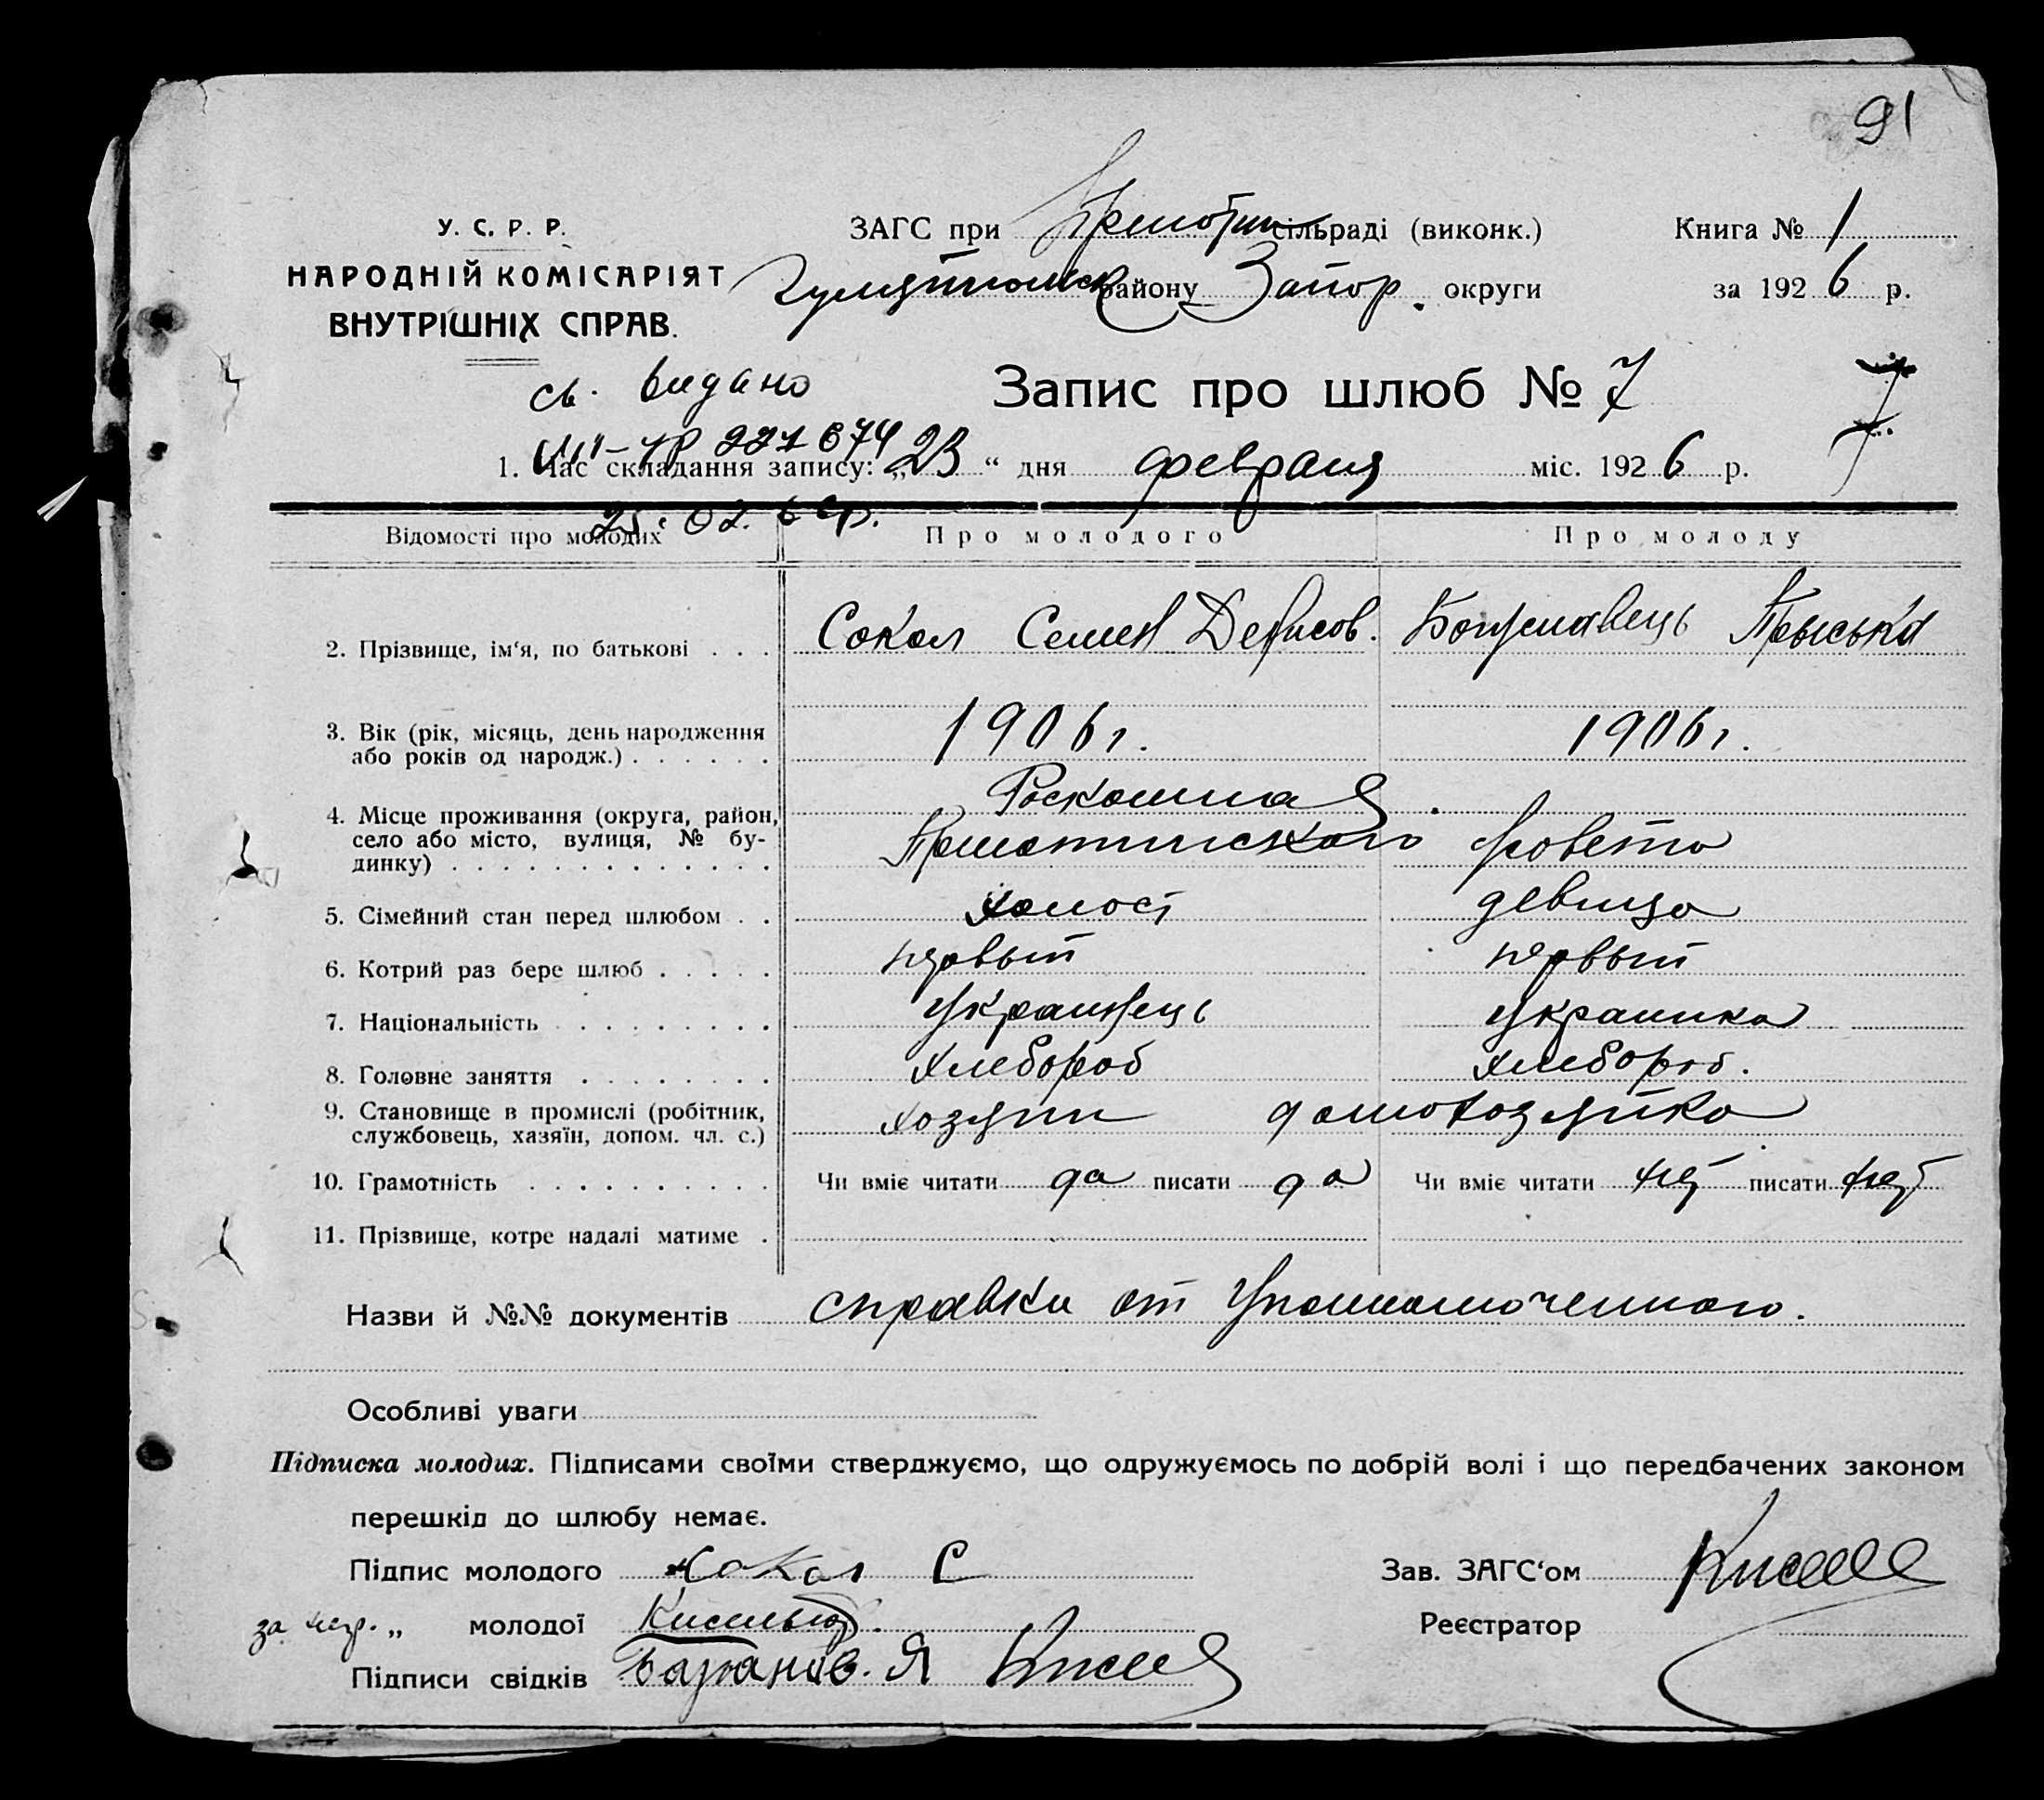 91
У. С. Р. Р.
НАРОДНІЙ КОМІСАРІЯТ
ВНУТРІШНІХ СПРАВ.
ЗАГС при сільраді (виконк.)
району Запор. округи
Книга № 1
за 1926 р.
св. видано
227674
Запис про шлюб № 7
7
1. Час складання запису: „23“ дня февраля міс. 1926 р.
Відомості про молодих Про молодого Про молоду
2. Прізвище, ім‘я, по батькові . . . Сокол Семен Денисов. Прыська
3. Вік (рік, місяць, день народження
або років од народж.) . . . . . . 1906 г. 1906 г.
4. Місце проживання (округа, район,
село або місто, вулиця, № бу-
динку) . . . . . . . . . . . . .
Роскошная
совета
5. Сімейний стан перед шлюбом . . холост девица
6. Котрий раз бере шлюб . . . . . первый первый
7. Національність . . . . . . . . . Українець Українка
8. Головне заняття . . . . . . . . хлебороб хлебороб.
9. Становище в промислі (робітник,
службовець, хазяїн, допом. чл. с.) хозяин домохозяйка
10. Грамотність . . . . . . . . . . Чи вміє читати да писати да Чи вміє читати нет писати нет
11. Прізвище, котре надалі матиме .
Назви й №№ документів справки от Уполномоченного.
Особливі уваги
Підписка молодих. Підписами своїми стверджуємо, що одружуємось по добрій волі і що передбачених законом
перешкід до шлюбу немає.
Підпис молодого Сокол С
Зав. ЗАГС‘ом
за негр. „ молодої
Реєстратор
Підписи свідків Баранов. Я